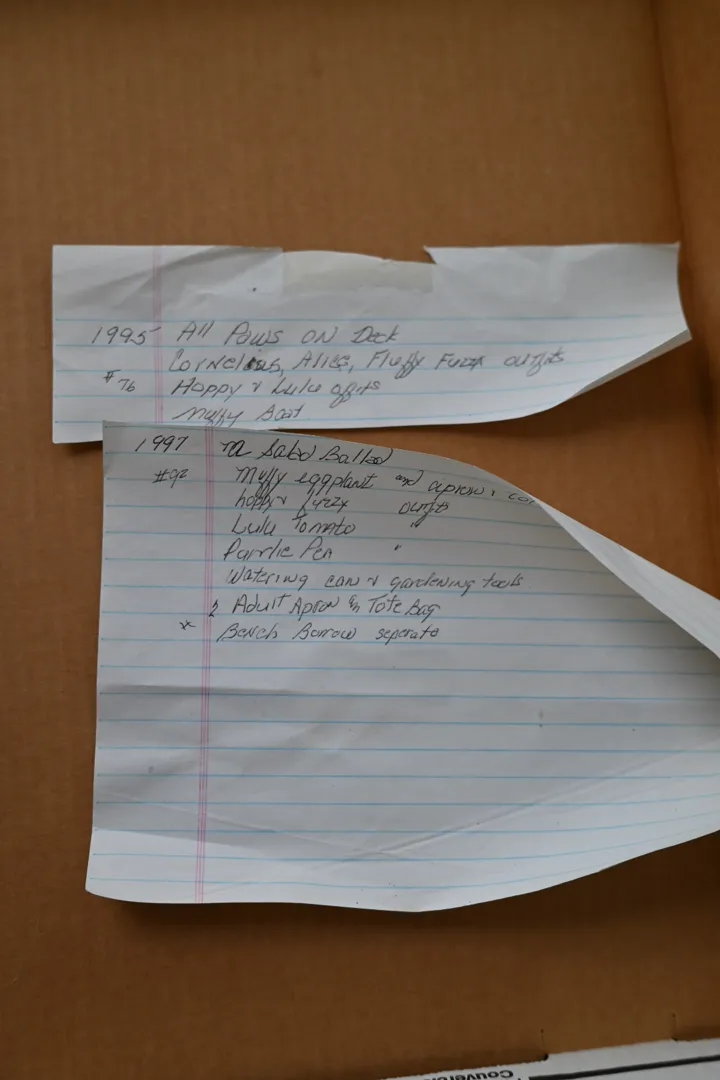 1995 All Paws ON Deck
Cornelius, Alice, Fluffy Fuzzx outfits
#76 Hoppy & Lulu offits
Muffy Boat
1997 Sabd Ballad
#92 Muffy eggplant and apron &
hoppy & fuzzx outfits
Lulu Tomato "
Parrlie Pen "
Watering can & gardening tools
2 Adult Apron & Tote Bag
* Bench Barrow seperate
Couvercl